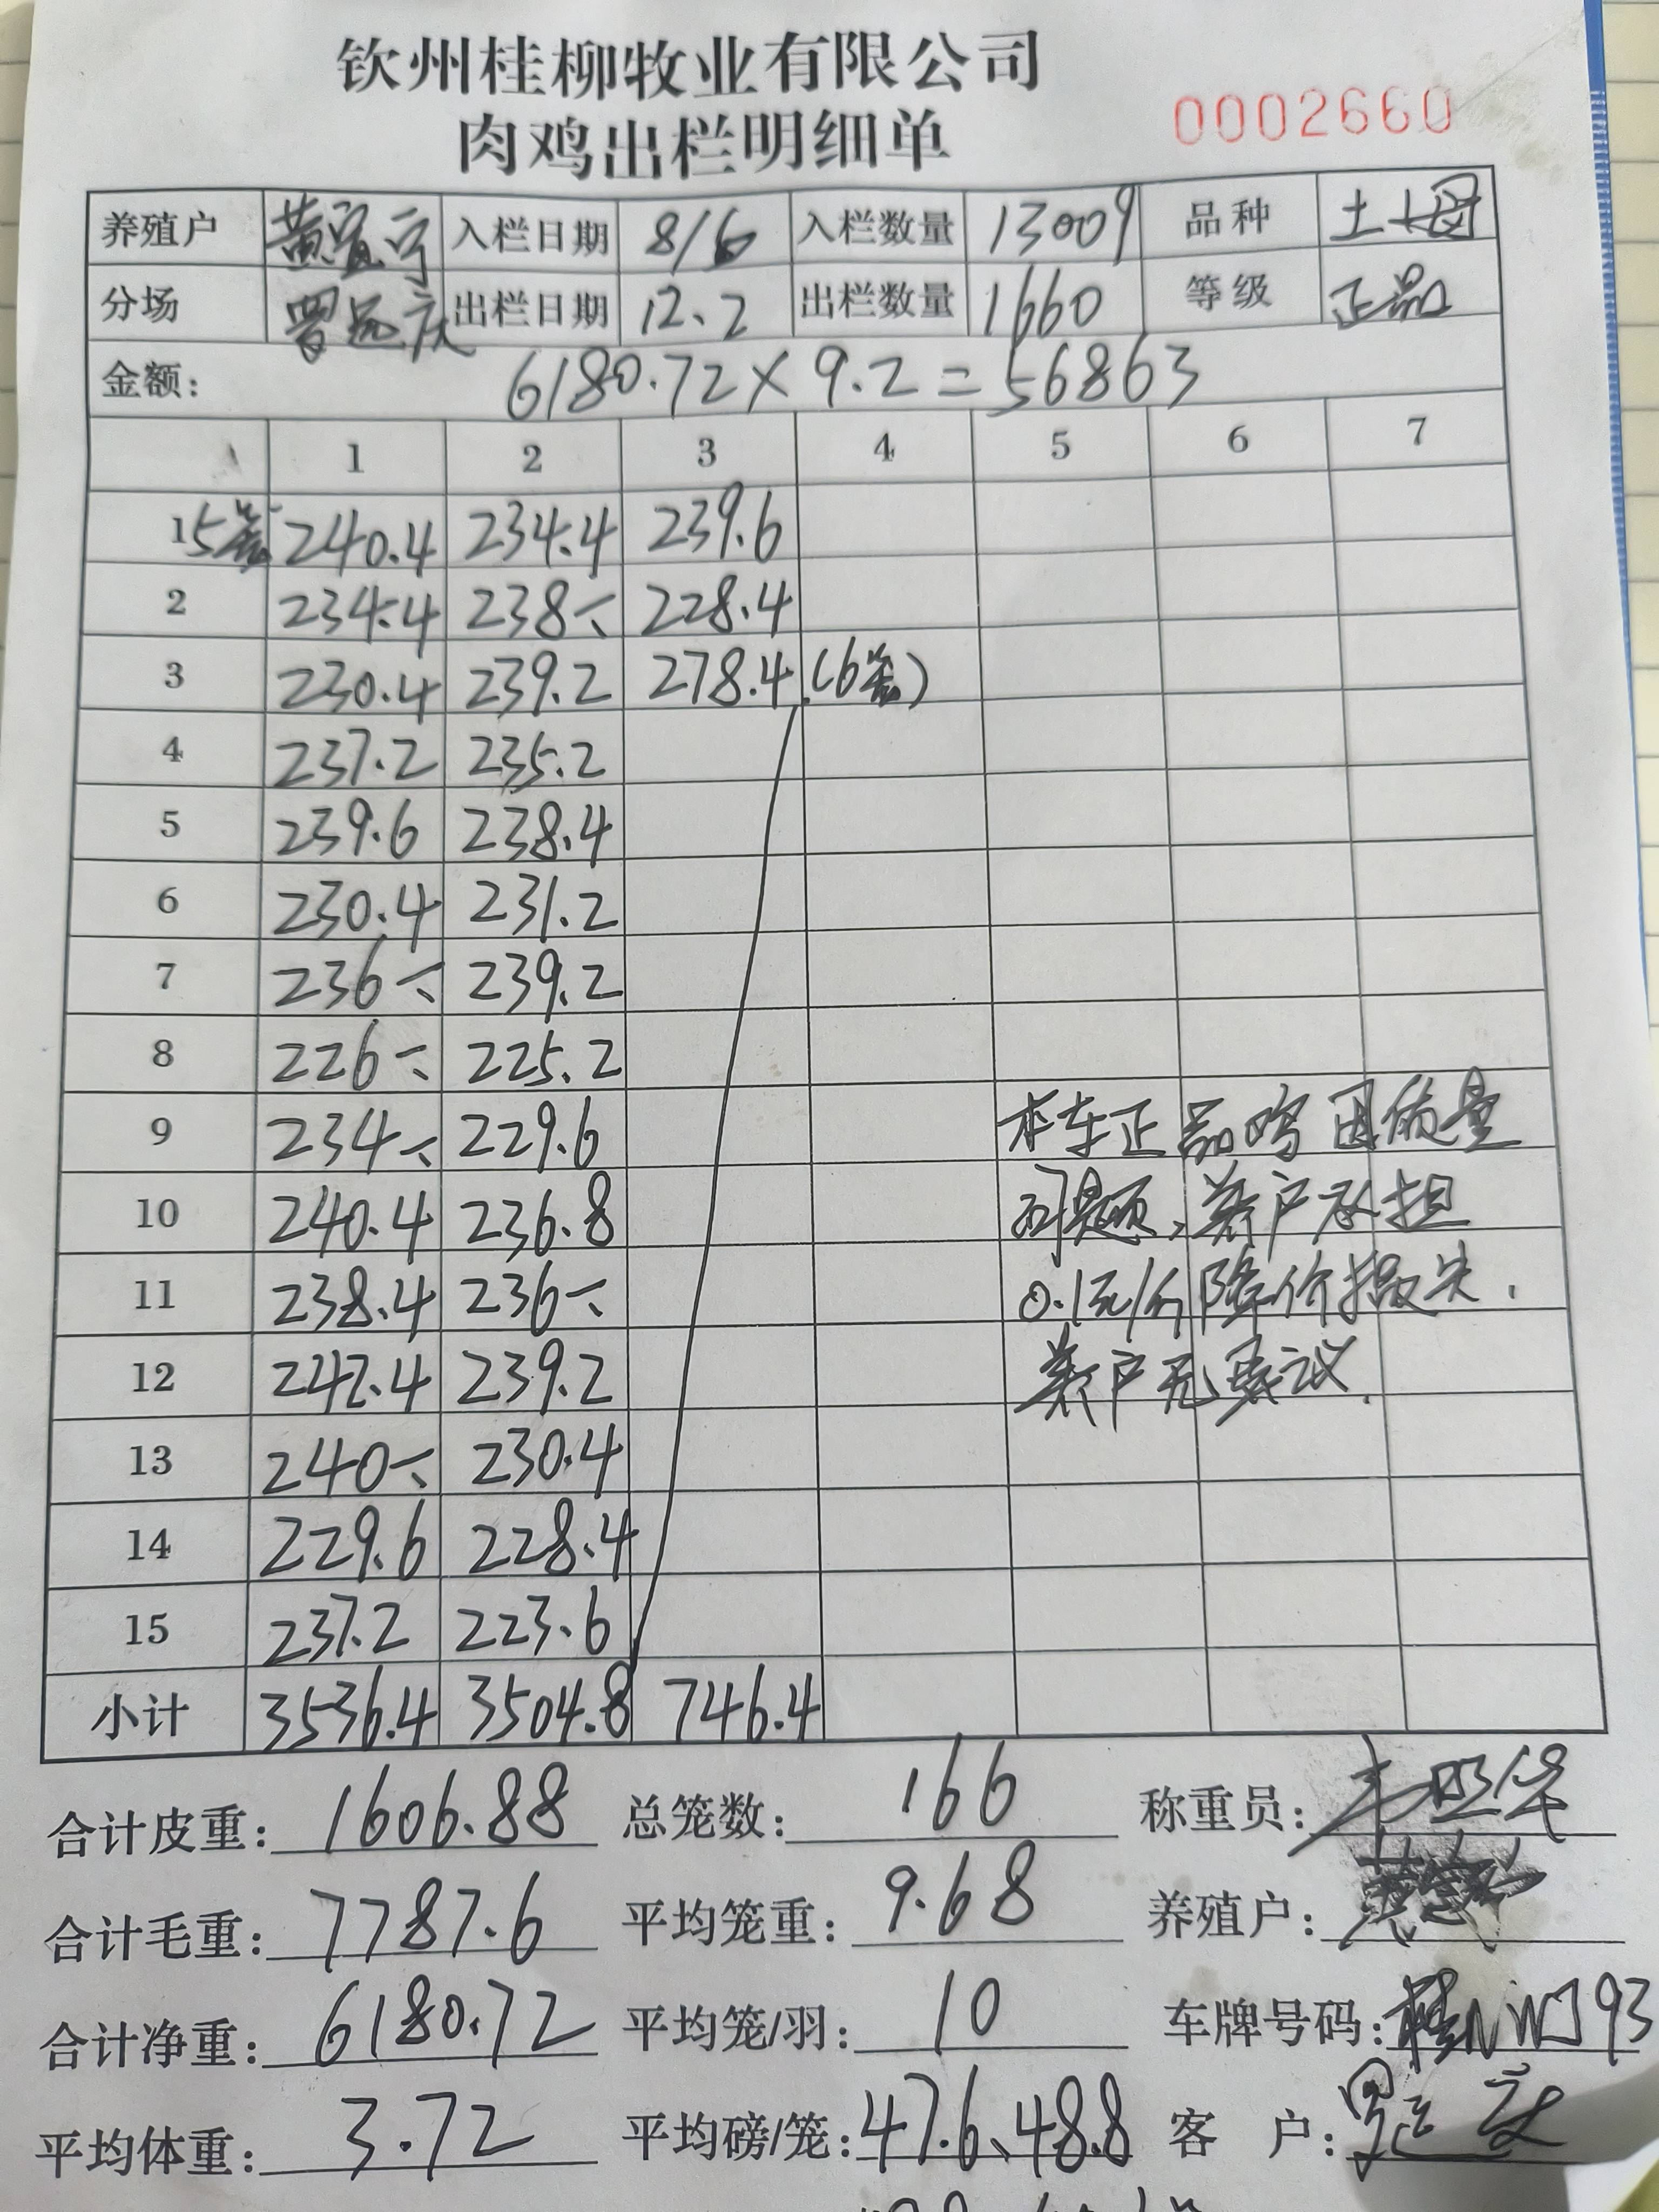 钦州桂柳牧业有限公司
肉鸡出栏明细单
0002660
养殖户 黄宜宁 入栏日期 8/6 入栏数量 13009 品种 土大母
分场 罗远庆 出栏日期 12.2 出栏数量 1660 等级 正品
金额: 6180.72×9.2=56863
1 2 3 4 5 6 7
1 5笼 240.4 234.4 239.6
2 234.4 238÷ 228.4
3 230.4 239.2 278.4 (6笼)
4 237.2 235.2
5 239.6 238.4
6 230.4 231.2
7 236÷ 239.2
8 226÷ 225.2
9 234÷ 229.6 本车正品鸡因质量
10 240.4 236.8 问题,养户承担
11 238.4 236÷ 0.1元/斤降价损失.
12 242.4 239.2 养户无异议.
13 240÷ 230.4
14 229.6 228.4
15 237.2 223.6
小计 3536.4 3504.8 746.4
合计皮重: 1606.88 总笼数: 166 称重员:
合计毛重: 7787.6 平均笼重: 9.68 养殖户:
合计净重: 6180.72 平均笼/羽: 10 车牌号码:
平均体重: 3.72 平均磅/笼: 47.6、48.8 客 户: